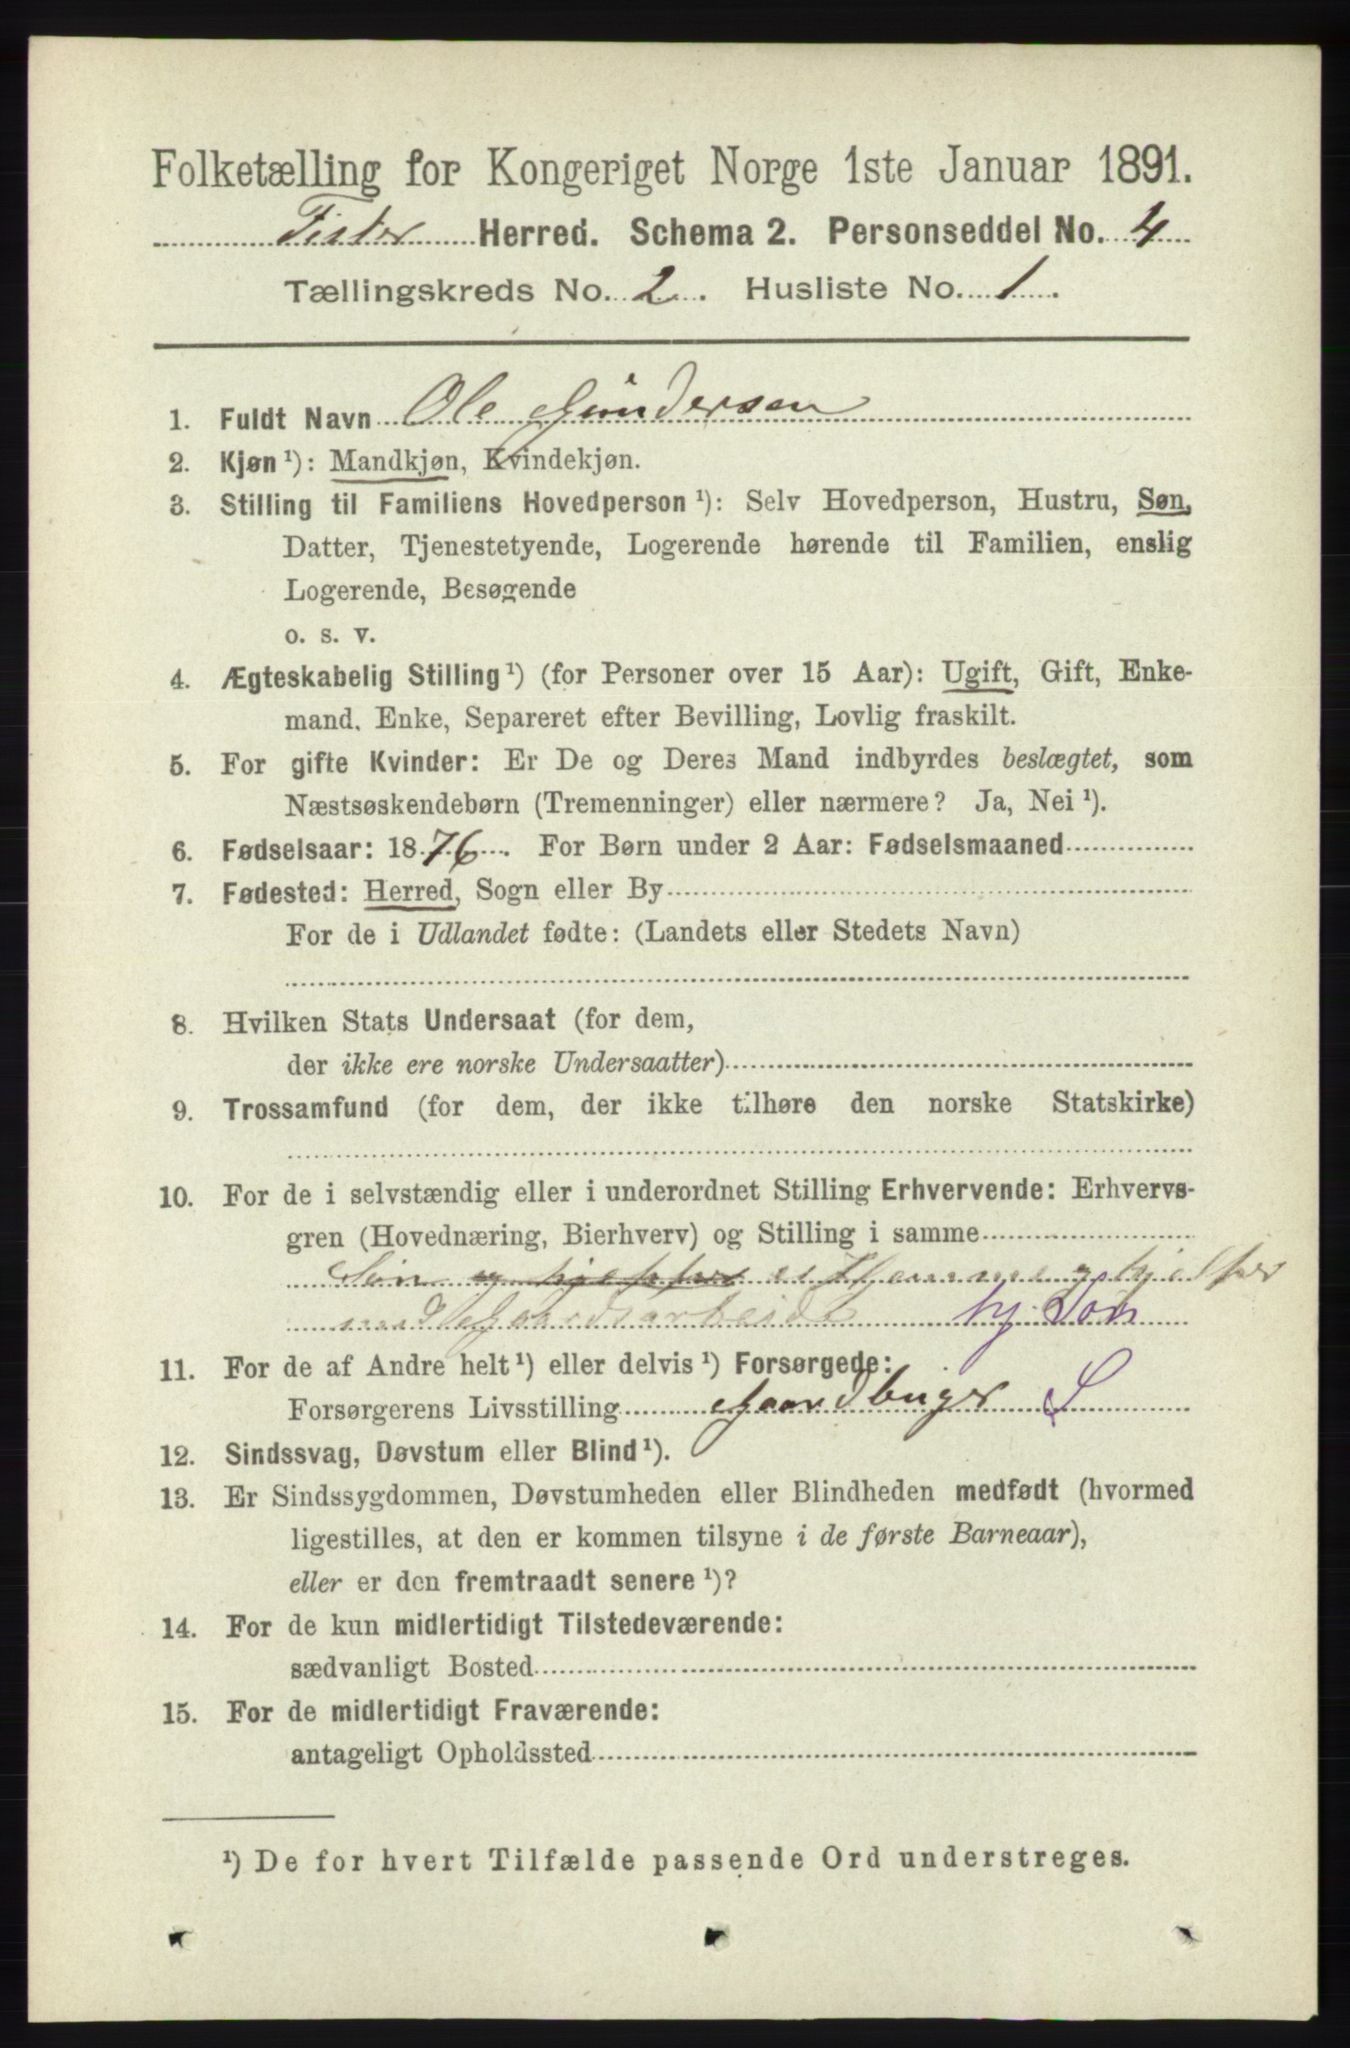 Folketælling for Kongeriget Norge 1ste Januar 1891.
Fister Herred. Schema 2. Personseddel No. 4
Tællingskreds No. 2. Husliste No. 1.
1. Fuldt Navn Ole Gundersen
2. Kjøn ¹): Mandkjøn, Kvindekjøn.
3. Stilling til Familiens Hovedperson ¹): Selv Hovedperson, Hustru, Søn,
Datter, Tjenestetyende, Logerende hørende til Familien, enslig
Logerende, Besøgende
o. s. v.
4. Ægteskabelig Stilling ¹) (for Personer over 15 Aar): Ugift, Gift, Enke-
mand, Enke, Separeret efter Bevilling, Lovlig fraskilt.
5. For gifte Kvinder: Er De og Deres Mand indbyrdes beslægtet, som
Næstsøskendebørn (Tremenninger) eller nærmere? Ja, Nei ¹).
6. Fødselsaar: 1876. For Børn under 2 Aar: Fødselsmaaned
7. Fødested: Herred, Sogn eller By
For de i Udlandet fødte: (Landets eller Stedets Navn)
8. Hvilken Stats Undersaat (for dem,
der ikke ere norske Undersaatter)
9. Trossamfund (for dem, der ikke tilhøre den norske Statskirke)
10. For de i selvstændig eller i underordnet Stilling Erhvervende: Erhvervs-
gren (Hovednæring, Bierhverv) og Stilling i samme
Søn og hjelper i Hjemme og hjelper
med Gaardsarbeide hj. Søn
11. For de af Andre helt ¹) eller delvis ¹) Forsørgede:
Forsørgerens Livsstilling Gaardbruger S
12. Sindssvag, Døvstum eller Blind ¹).
13. Er Sindssygdommen, Døvstumheden eller Blindheden medfødt (hvormed
ligestilles, at den er kommen tilsyne i de første Barneaar),
eller er den fremtraadt senere ¹)?
14. For de kun midlertidigt Tilstedeværende:
sædvanligt Bosted
15. For de midlertidigt Fraværende:
antageligt Opholdssted
¹) De for hvert Tilfælde passende Ord understreges.